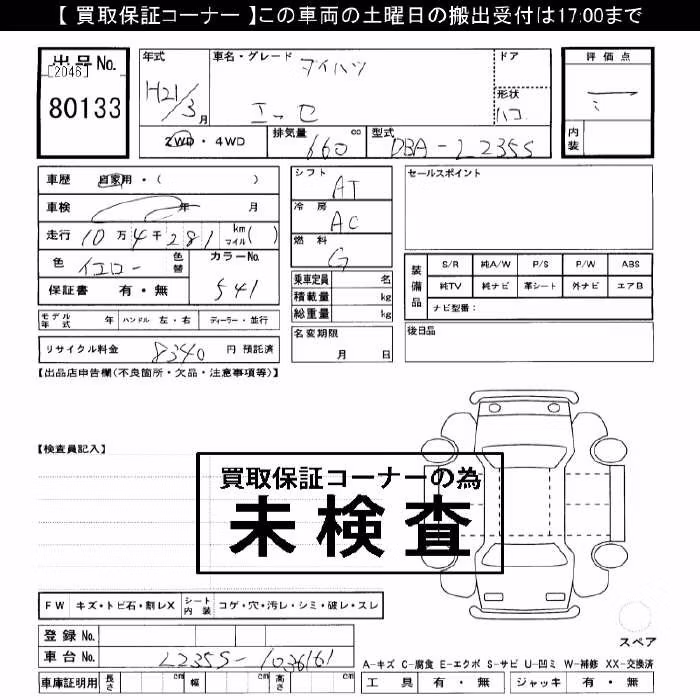 【 買取保証コーナー 】この車両の土曜日の搬出受付は17:00まで
出品No.
[2046]
80133
年式
H21/3月
車名・グレード
ダイハツ
エッセ
ドア
形状
ハコ
評価点
内装
2WD・4WD
排気量 660 cc
型式 DBA-L235S
車歴 自家用・( )
車検 年 月
走行 10万4千281 km マイル( )
色 イエロー 色替
カラーNo. S41
保証書 有・無
シフト AT
冷房 AC
燃料 G
乗車定員 名
積載量 kg
総重量 kg
セールスポイント
装備品 S/R 純A/W P/S P/W ABS
純TV 純ナビ 革シート 外ナビ エアB
ナビ型番:
モデル年式 年 ハンドル 左・右 ディーラー・並行
名変期限 月 日
後日品
リサイクル料金 8340 円 預託済
【出品店申告欄(不良箇所・欠品・注意事項等)】
【検査員記入】
買取保証コーナーの為
未検査
FW キズ・トビ石・割レX シート内装 コゲ・穴・汚レ・シミ・破レ・スレ
登録No.
車台No. L235S-1036161
車庫証明用 長さ cm 幅 cm 高さ cm
スペア
A-キズ C-腐食 E-エクボ S-サビ U-凹ミ W-補修 XX-交換済
工具 有・無 ジャッキ 有・無